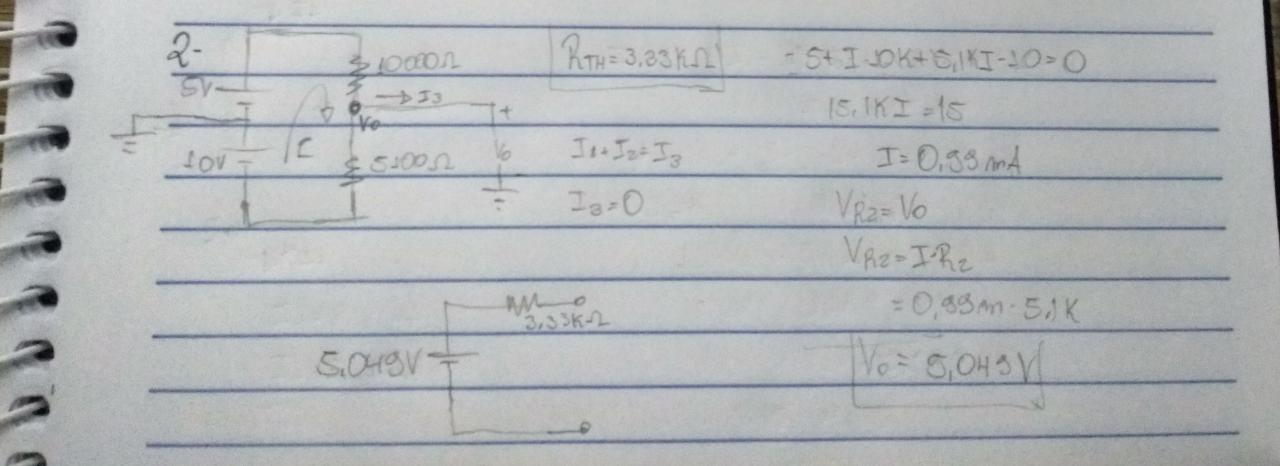 2-
10000Ω
5V
→I3
V0
+
10V
I
5100Ω
V0
RTH=3.33KΩ
I1+I2=I3
I3=0
-5+I.10K+5,1KI-10=0
15,1KI=15
I=0,99mA
VR2=V0
VR2=I.R2
=0,99m.5,1K
V0=5,049V
3,33KΩ
5,049V